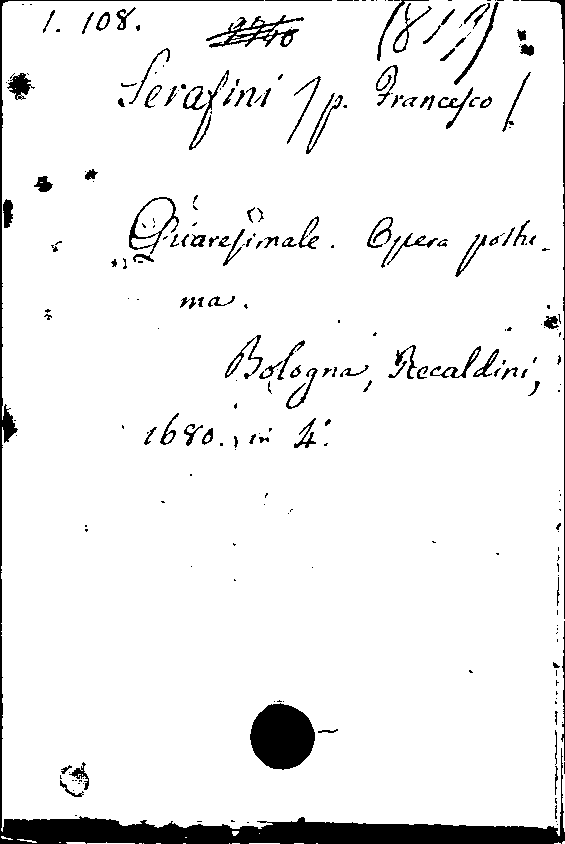 1. 108.
Serafini / p. Francesco /
Quaresimale. Opera postu-
ma.
Bologna, Recaldini,
1680., in 4°.